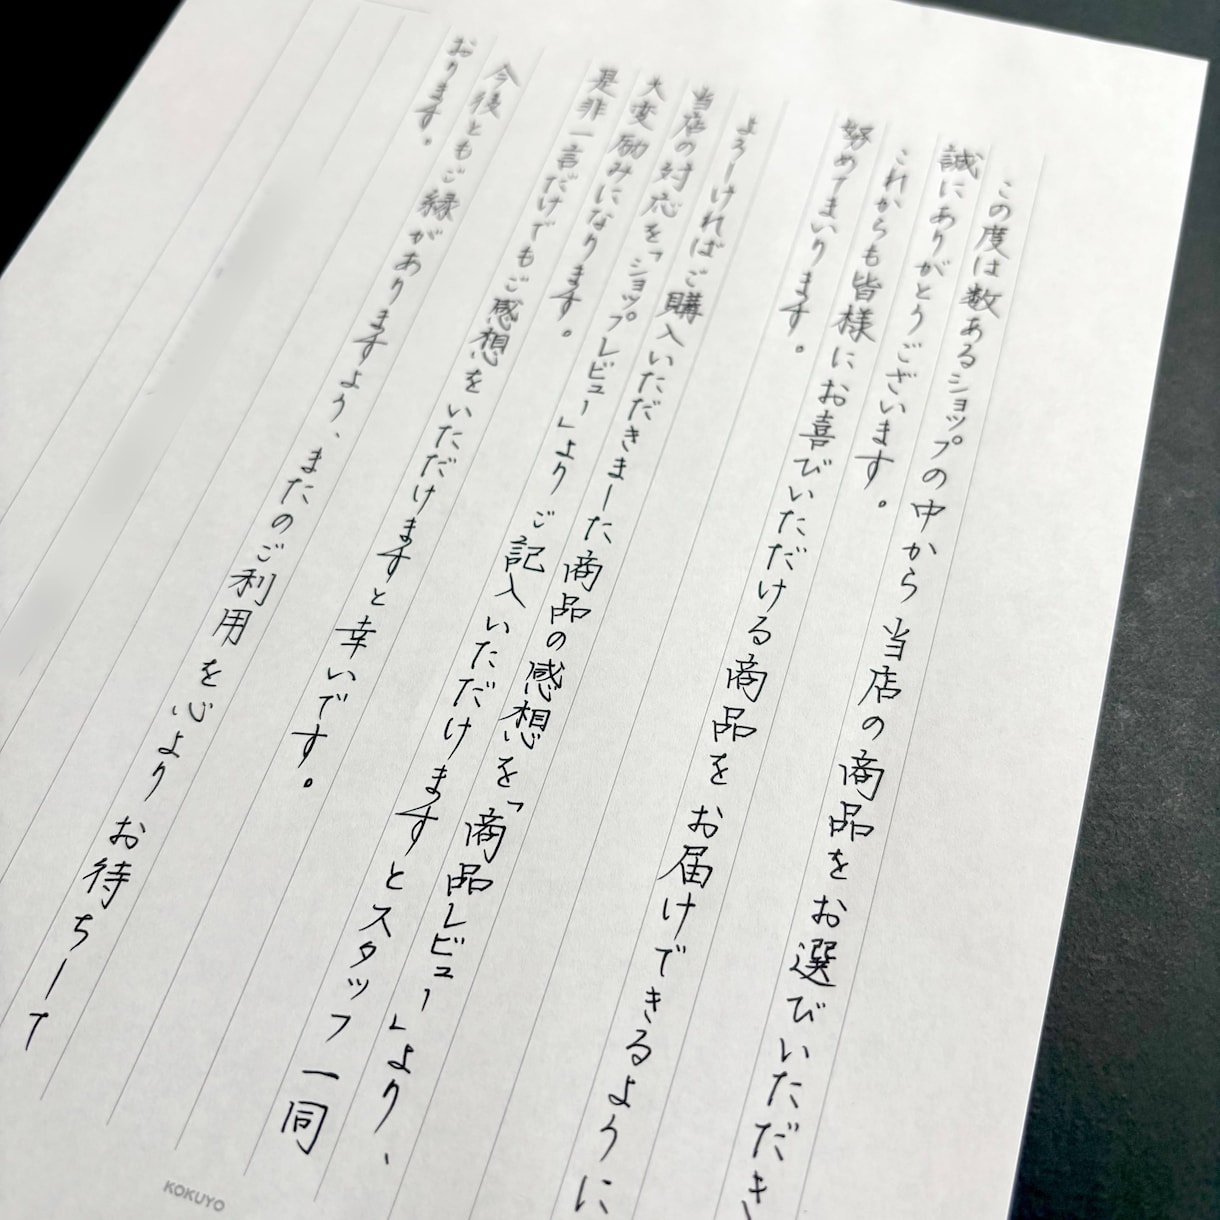 この度は数あるショップの中から当店の商品をお選びいただき
誠にありがとうございます。
これからも皆様にお喜びいただける商品をお届けできるように
努めてまいります。
よろしければご購入いただきました商品の感想を「商品レビュー」より、
当店の対応を「ショップレビュー」よりご記入いただけますとスタッフ一同
大変励みになります。
是非一言だけでもご感想をいただけますと幸いです。
今後ともご縁がありますよう、またのご利用を心よりお待ちして
おります。
KOKUYO